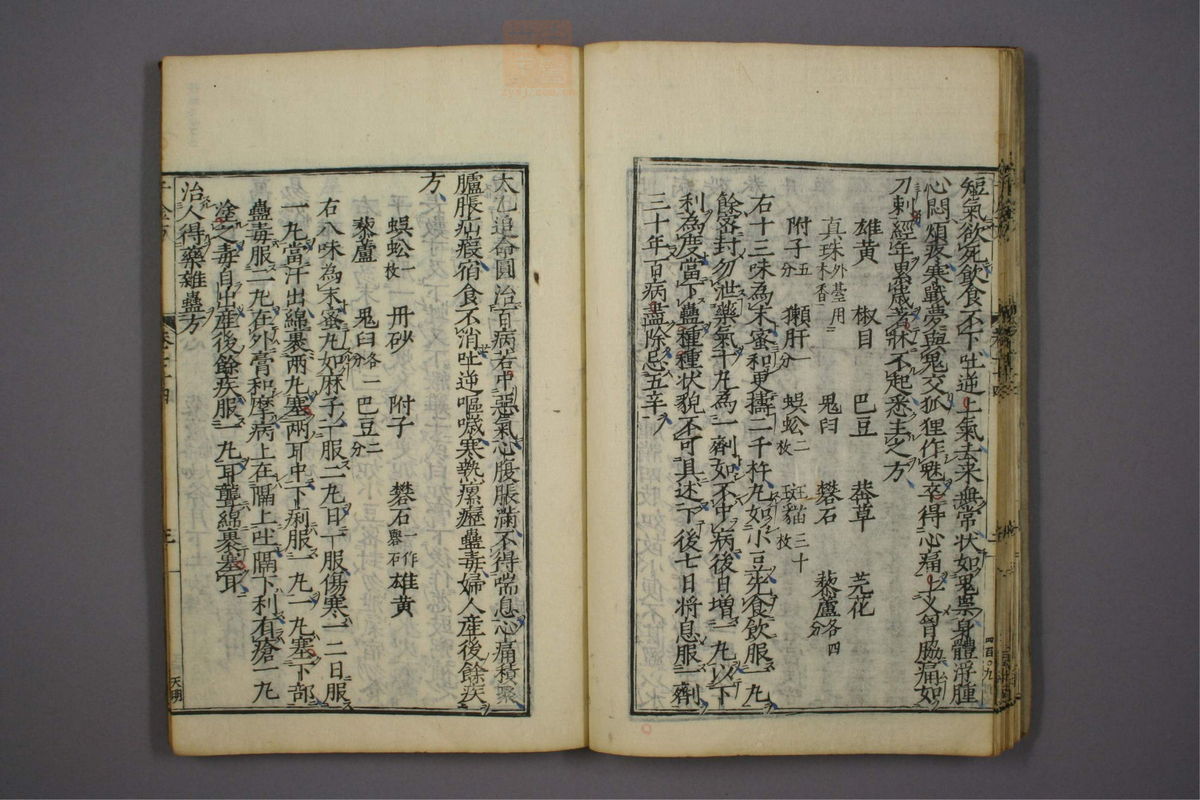 短氣欲死飲食不下吐逆上氣去来無常状如鬼祟身體浮腫
心悶煩疼寒戰夢與鬼交狐狸作魅卒得心痛上叉胷脇痛如
刀刺經年累歳著牀不起悉主之方
雄黄 椒目 巴豆 莽草 芫花
真珠木香外臺用 鬼臼 礬石 藜蘆各四分
附子五分 獺肝一分 蜈蚣二枚 斑猫三十枚
右十三味為末蜜和更擣二千杵丸如小豆先食飲服一丸
餘密封勿泄藥氣十丸為一劑如不中病後日増一丸以下
利為度當下蠱種種状貌不可具述下後七日将息服一劑
三十年百病盡除忌五辛
太一追命圓治百病若中惡氣心腹脹滿不得喘息心痛積聚
臚脹疝瘕宿食不消吐逆嘔噦寒熱瘰癧蠱毒婦人産後餘疾
方
蜈蚣一枚 丹砂 附子 礬石一作礜石 雄黄
藜蘆 鬼臼各一分 巴豆二分
右八味為末蜜丸如麻子一服二丸日一服傷寒一二日服
一丸當汗出綿裹両丸塞両耳中下痢服一丸一丸塞下部
蠱毒服二丸在外膏和摩病上在膈上吐膈下利有瘡一丸
塗之毒自出産後餘疾服一丸耳聾綿裹塞耳
治人得藥雜蠱方